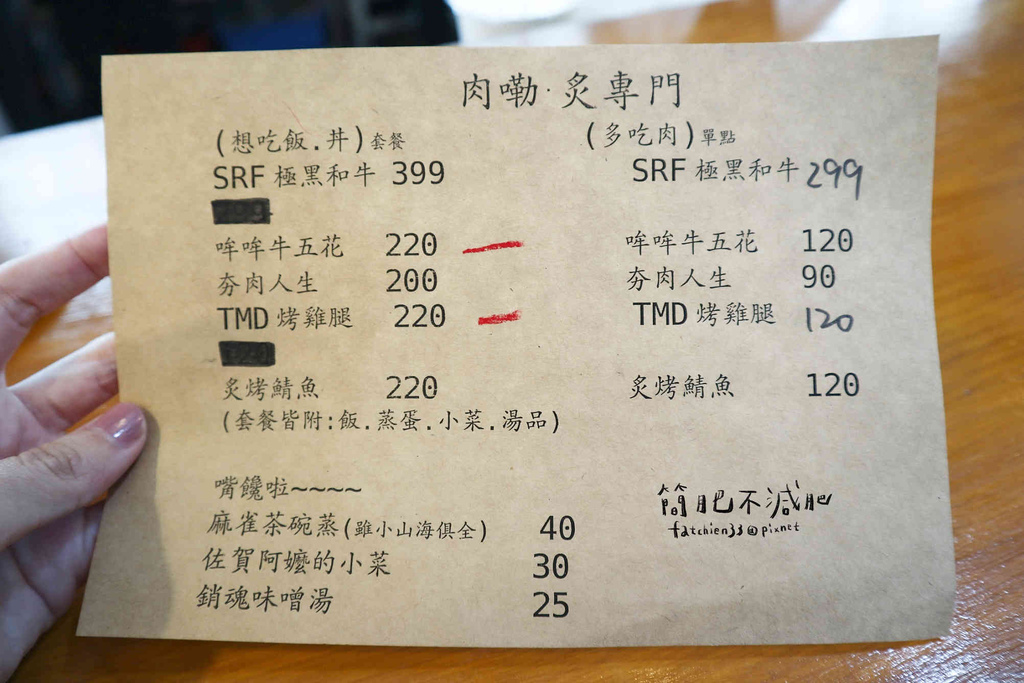 肉嘞·炙專門
(想吃飯.丼)套餐
SRF 極黑和牛 399
哞哞牛五花 220
夯肉人生 200
TMD 烤雞腿 220
炙烤鯖魚 220
(套餐皆附:飯.蒸蛋.小菜.湯品)
(多吃肉)單點
SRF 極黑和牛 299
哞哞牛五花 120
夯肉人生 90
TMD 烤雞腿 120
炙烤鯖魚 120
嘴饞啦~~~~
麻雀茶碗蒸(雖小山海俱全) 40
佐賀阿嬤的小菜 30
銷魂味噌湯 25
簡肥不減肥
fatchien33@pixnet